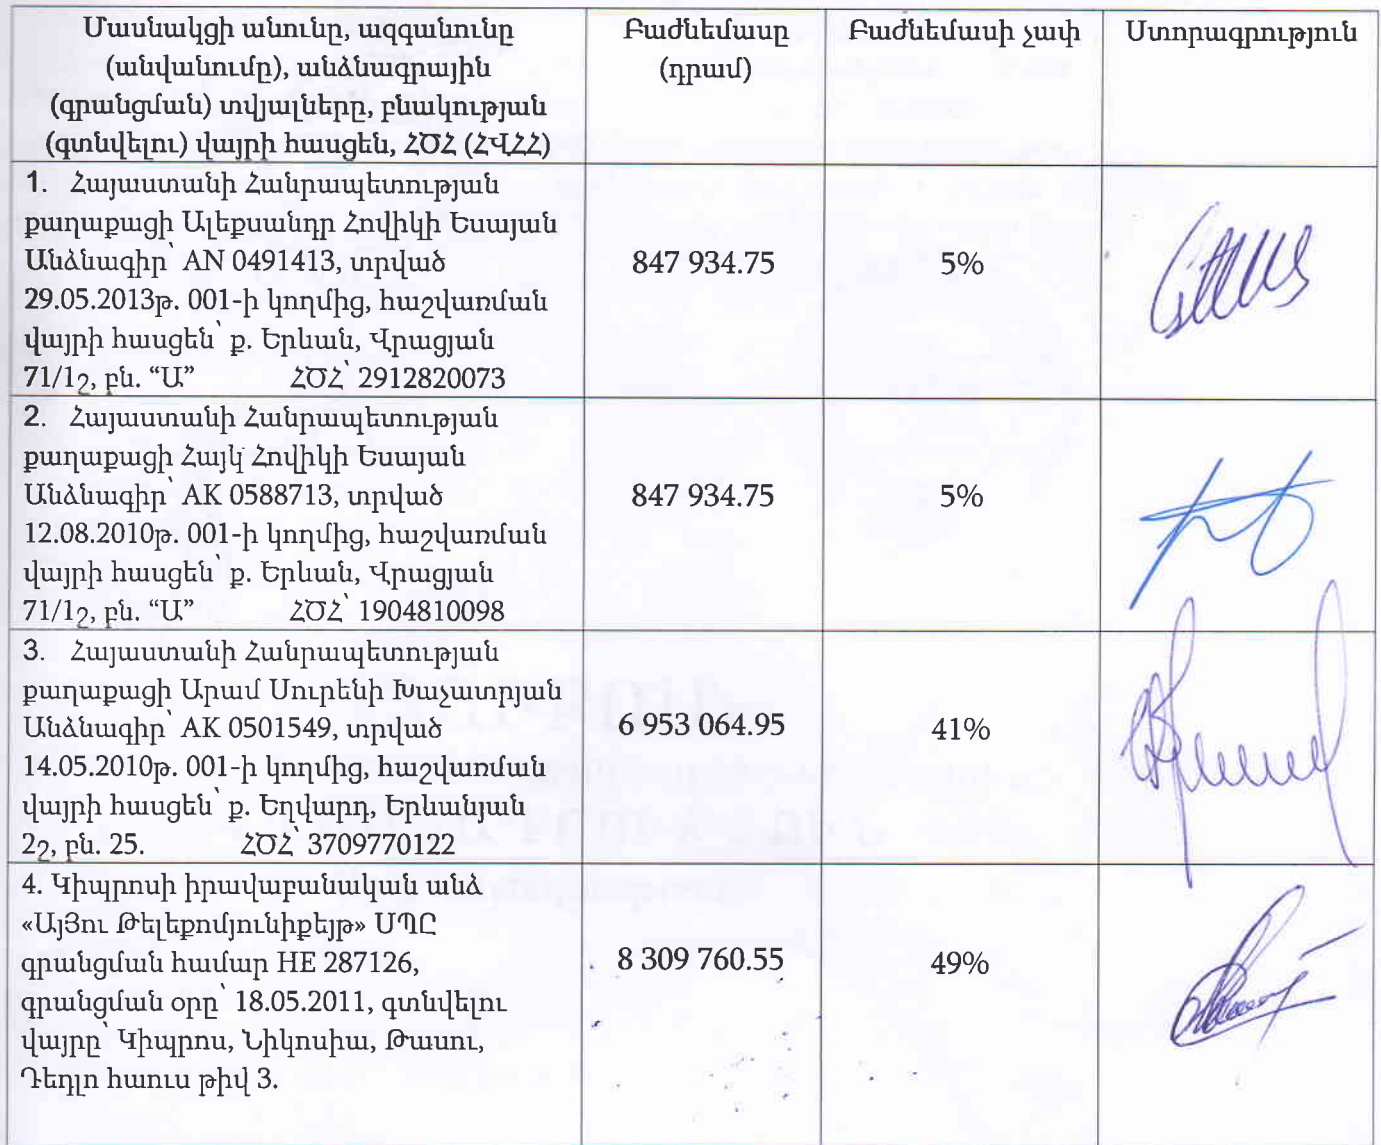 Մասնակցի անունը, ազգանունը
(անվանումը), անձնագրային
(գրանցման) տվյալները, բնակության
(գտնվելու) վայրի հասցեն, ՀԾՀ (ՀՎՀՀ)
Բաժնեմասը
(դրամ)
Բաժնեմասի չափ
Ստորագրություն
1. Հայաստանի Հանրապետության
քաղաքացի Ալեքսանդր Հովիկի Եսայան
Անձնագիր՝ AN 0491413, տրված
29.05.2013թ. 001-ի կողմից, հաշվառման
վայրի հասցեն՝ ք. Երևան, Վրացյան
71/1շ, բն. “Ա” ՀԾՀ՝ 2912820073
847 934.75
5%
2. Հայաստանի Հանրապետության
քաղաքացի Հայկ Հովիկի Եսայան
Անձնագիր՝ AK 0588713, տրված
12.08.2010թ. 001-ի կողմից, հաշվառման
վայրի հասցեն՝ ք. Երևան, Վրացյան
71/1շ, բն. “Ա” ՀԾՀ՝ 1904810098
847 934.75
5%
3. Հայաստանի Հանրապետության
քաղաքացի Արամ Սուրենի Խաչատրյան
Անձնագիր՝ AK 0501549, տրված
14.05.2010թ. 001-ի կողմից, հաշվառման
վայրի հասցեն՝ ք. Եղվարդ, Երևանյան
2շ, բն. 25. ՀԾՀ՝ 3709770122
6 953 064.95
41%
4. Կիպրոսի իրավաբանական անձ
«ԱյՅու Թելեքոմյունիքեյթ» ՍՊԸ
գրանցման համար HE 287126,
գրանցման օրը՝ 18.05.2011, գտնվելու
վայրը՝ Կիպրոս, Նիկոսիա, Թասու,
Դեդլո հաուս թիվ 3.
8 309 760.55
49%